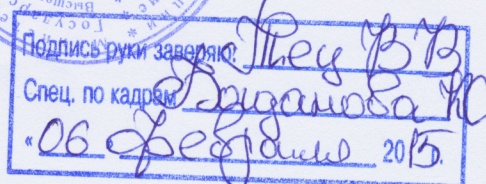 Подпись руки заверяю: Тец В В
Спец. по кадрам Богданова Ю
"06" февраля 2015.